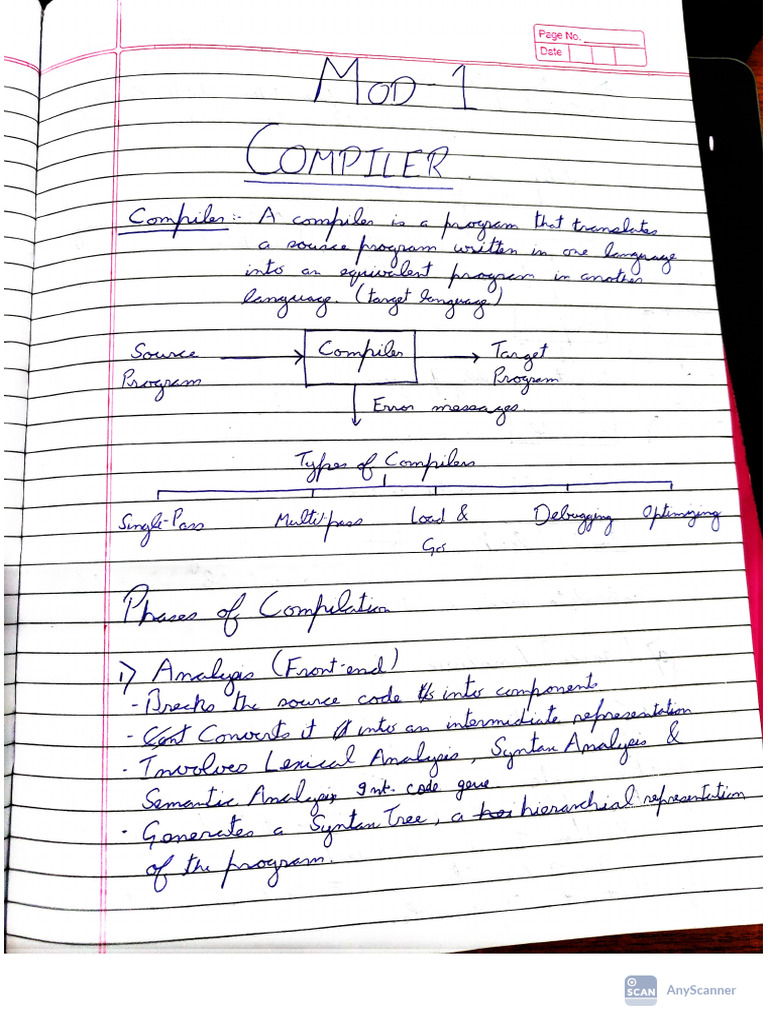 Page No.
Date
MOD-1
COMPILER
Compiler:- A compiler is a program that translates
a source program written in one language
into an equivalent program in another
language. (target language)
Source → Compiler → Target
Program Program
Error messages.
Types of Compilers
Single-Pass Multi-pass Load & Debugging Optimizing
Go
Phases of Compilation
i) Analysis (Front-end)
- Breaks the source code into components
- Converts it into an intermediate representation
- Involves Lexical Analysis, Syntax Analysis &
Semantic Analysis, Int. code gene.
- Generates a Syntax Tree, a hierarchial representation
of the program.
SCAN AnyScanner